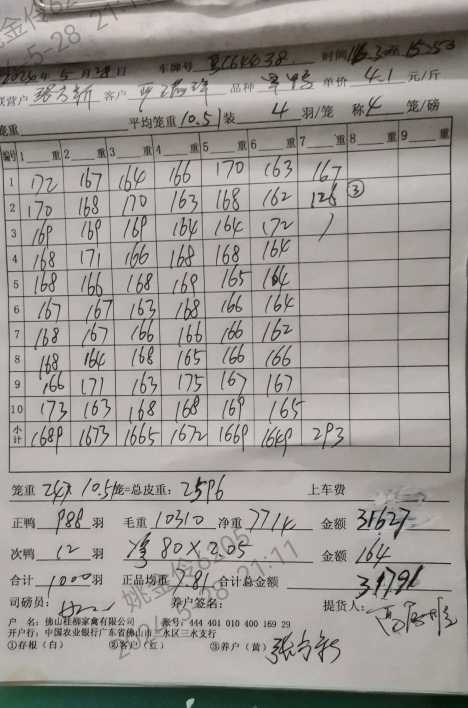 2024年5月28日 车牌号 时间
联营户 客户 品种 单价 4.1 元/斤
笼重 平均笼重 10.51 装 4 羽/笼 称 4 笼/磅
编号 1 重 2 重 3 重 4 重 5 重 6 重 7 重 8 重 9 重
1 172 167 164 166 170 163 167
2 170 168 170 163 168 162 126 ③
3 169 169 169 164 164 172
4 168 171 166 168 168 164
5 168 166 168 169 165 164
6 167 167 163 168 166 164
7 168 167 166 166 166 162
8 168 164 168 165 166 166
9 166 171 163 175 167 167
10 173 163 168 168 169 165
小计 1689 1673 1665 1672 1669 1649 293
笼重 247 10.51 笼=总皮重: 2596 上车费
正鸭 988 羽 毛重 10310 净重 7714 金额 31627
次鸭 12 羽 净 80×2.05 金额 164
合计 1000 羽 正品均重 7.81 合计总金额 31791
司磅员: 养户签名: 提货人:
户 名: 佛山桂柳家禽有限公司 账号: 444 401 010 400 169 29
开户行: 中国农业银行广东省佛山市三水区三水支行
①存根(白) ②客户(红) ③养户(黄)
5-28 21:11